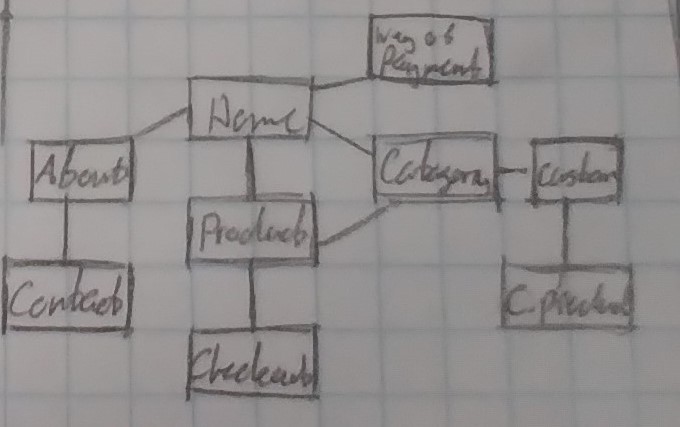 Way of
Payment
Home
About
Category
Custom
Product
Contact
C.product
Checkout